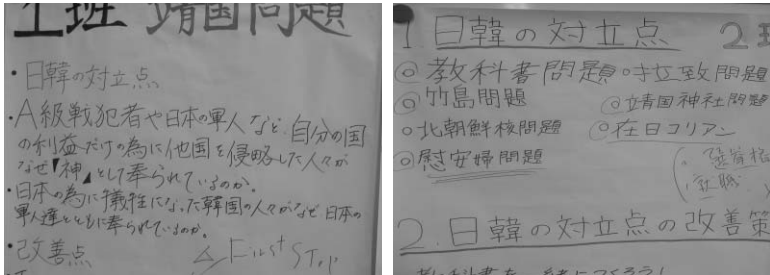 1班 靖国問題
・日韓の対立点
・A級戦犯者や日本の軍人など、自分の国
の利益だけの為に他国を侵略した人々が
なぜ『神』として奉られているのか。
・日本の為に犠牲になった韓国の人々がなぜ日本の
軍人達とともに奉られているのか。
・改善点
First Step
1 日韓の対立点 2班
◎教科書問題 ○拉致問題
◎竹島問題 ◎靖国神社問題
○北朝鮮核問題 ◎在日コリアン
◎慰安婦問題
就職
2.日韓の対立点の改善策